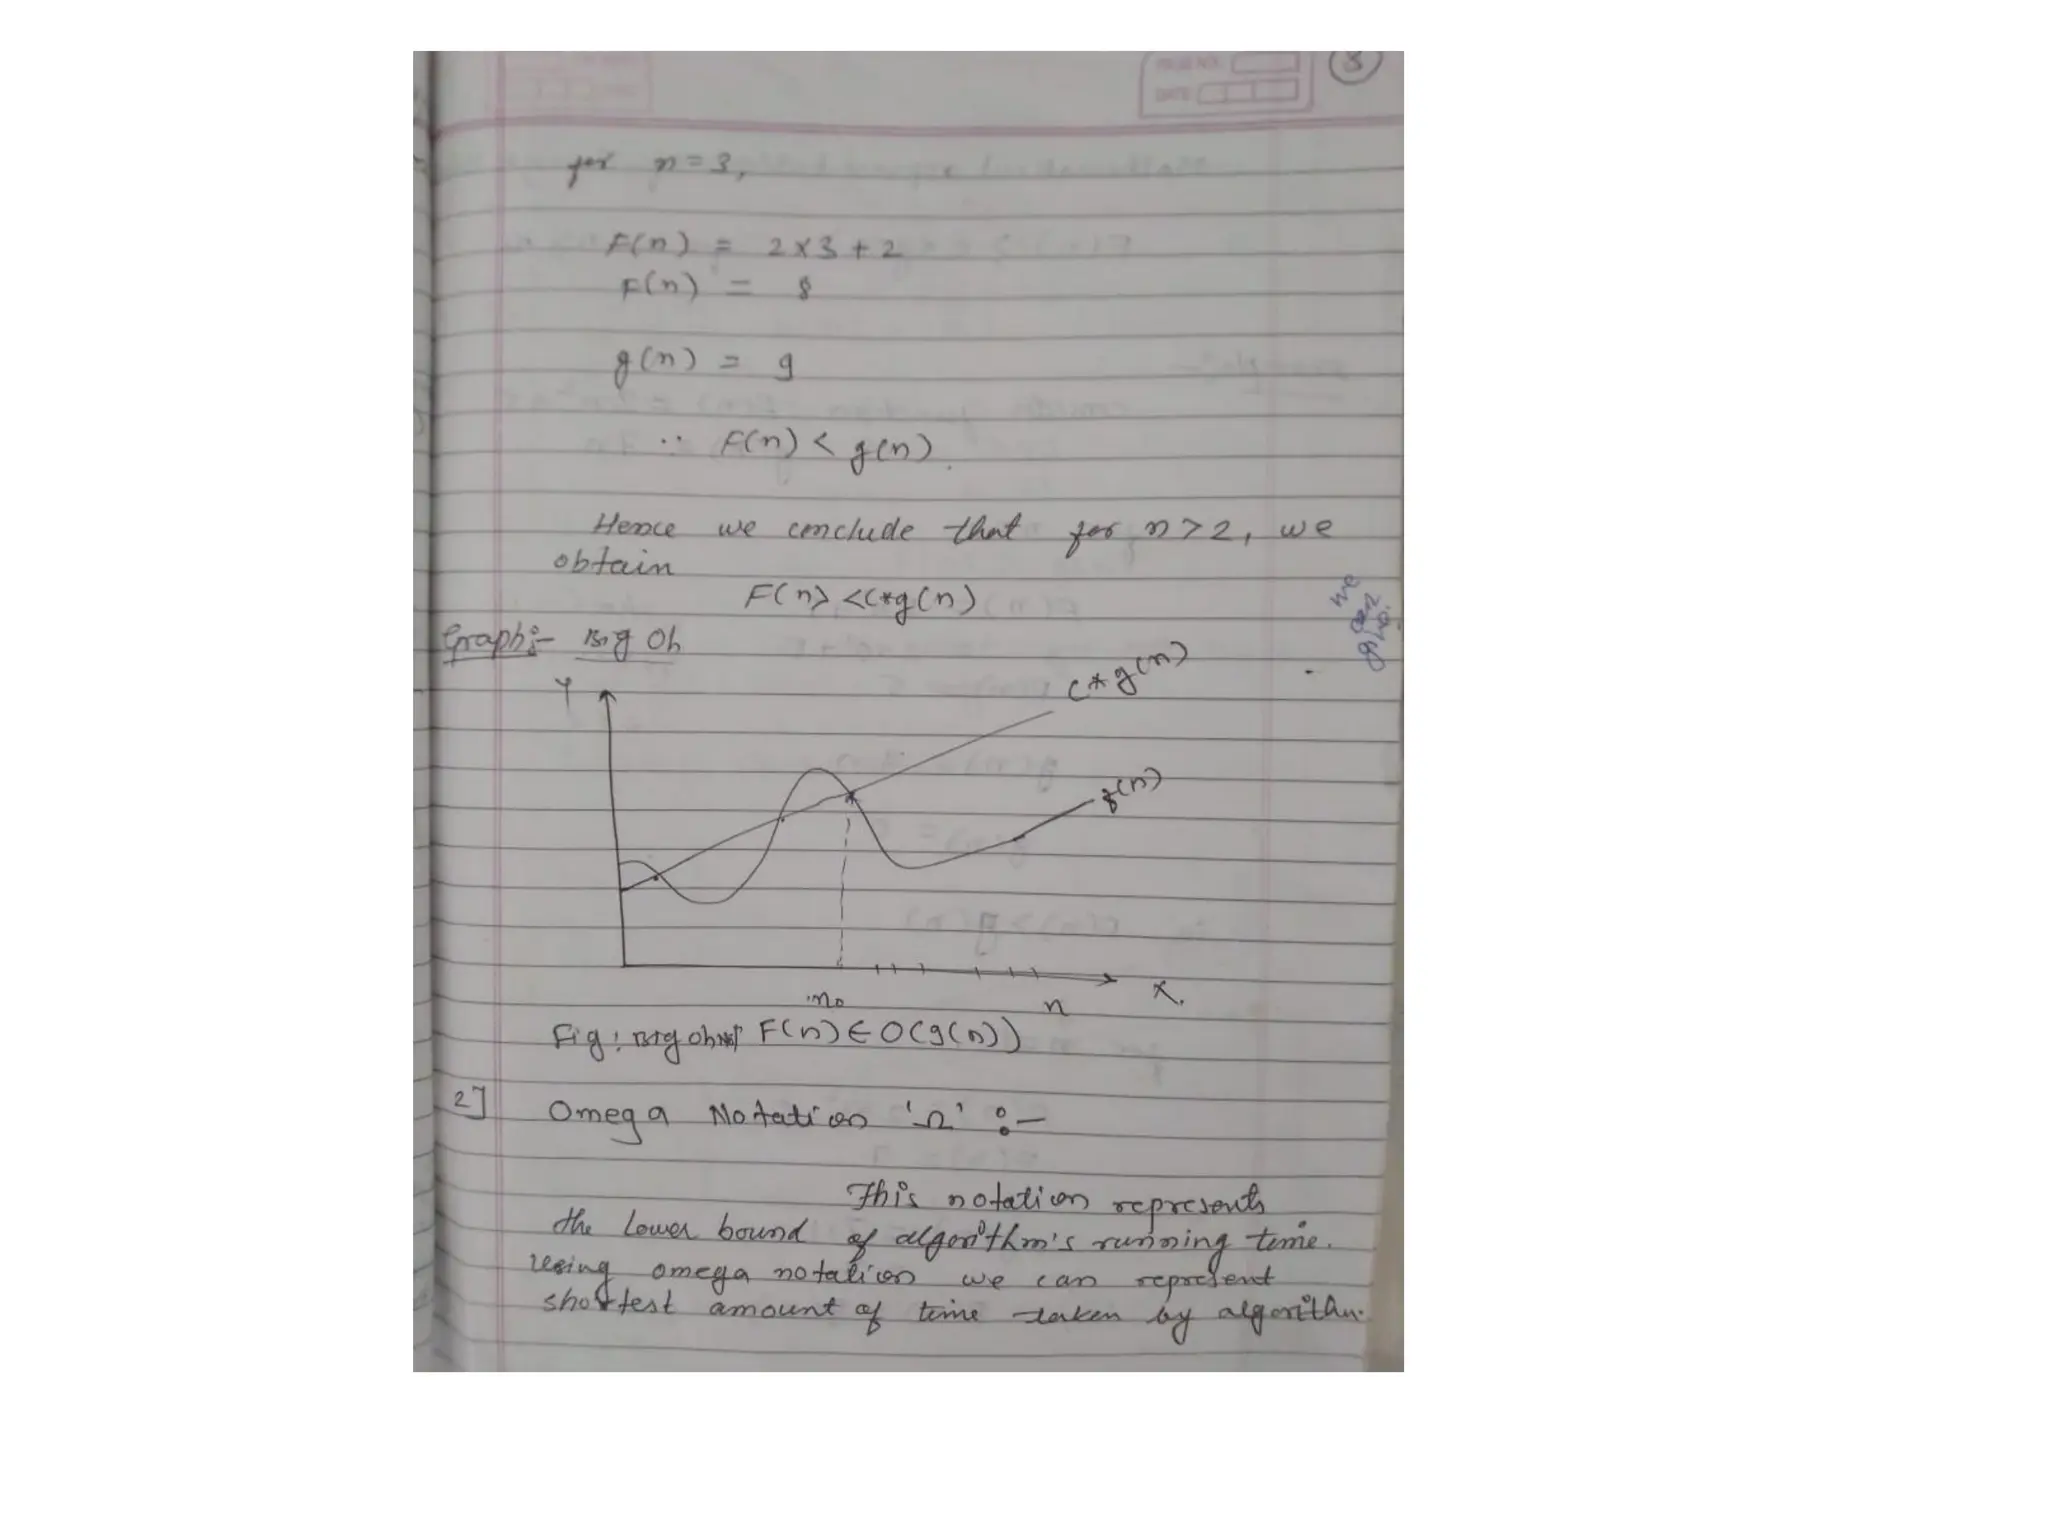 8
PAGE NO.
DATE
for n = 3,
F(n) = 2 x 3 + 2
F(n) = 8
g(n) = 9
∴ F(n) < g(n).
Hence we conclude that for n > 2, we
obtain
F(n) < c*g(n)
Graph:- Big Oh
Y
c * g(n)
f(n)
X.
n₀
n
Fig: Big oh F(n) ∈ O(g(n))
2] Omega Notation 'Ω' :-
This notation represents
the Lower bound of algorithm's running time.
Using omega notation we can represent
shortest amount of time taken by algorithm.